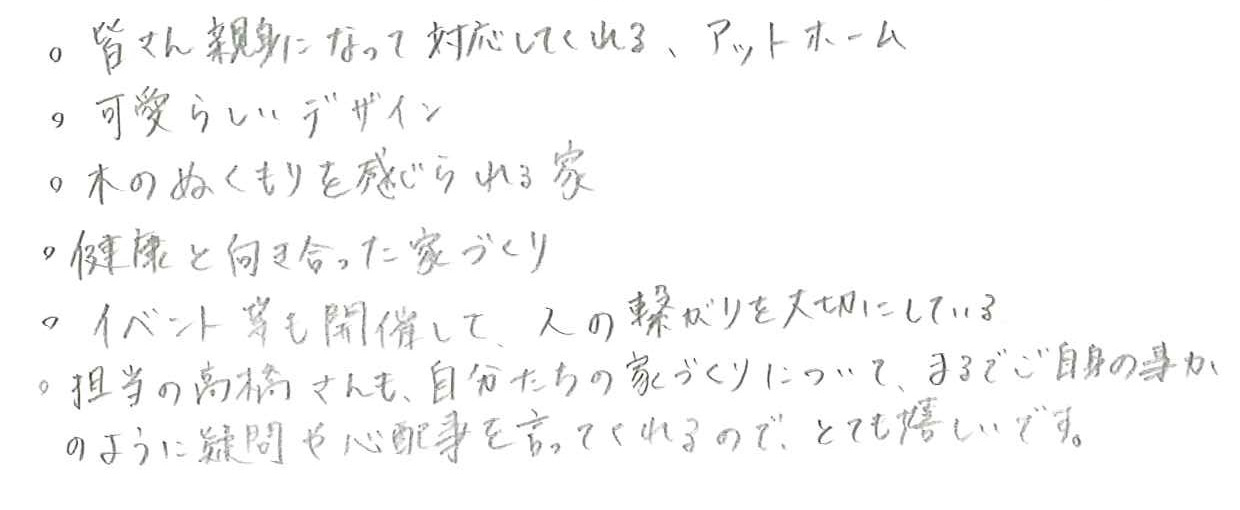 。皆さん親身になって対応してくれる、アットホーム
。可愛らしいデザイン
。木のぬくもりを感じられる家
。健康と向き合った家づくり
。イベント等も開催して、人の繋がりを大切にしている
。担当の高橋さんも、自分たちの家づくりについて、まるでご自身の事か
のように疑問や心配事を言ってくれるので、とても嬉しいです。